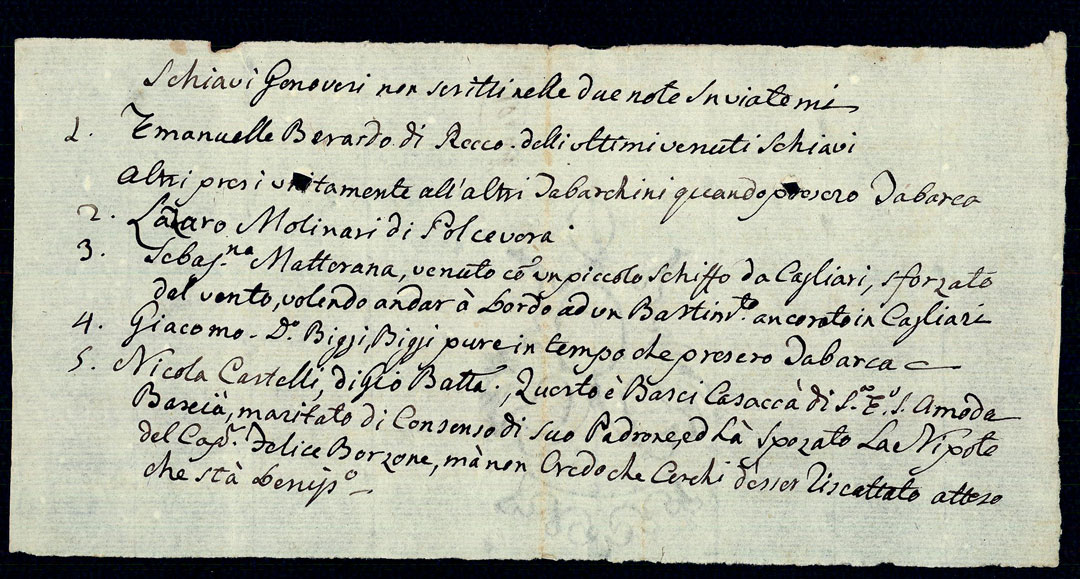 Schiavi Genovesi non scritti nelle due note Inviatemi
1. Emanuelle Berardo di Recco. delli ultimi venuti Schiavi
altri presi unitamente all'altri Tabarchini quando presero Tabarca
2. Lazaro Molinari di Polcevera.
3. Sebas.na Matterana, venuto cõ un piccolo Schiffo da Cagliari, sforzato
dal vento, volendo andar à bordo ad un Bastim.to ancorato in Cagliari
4. Giacomo D.o Biggi, Biggi pure in tempo che presero Tabarca
5. Nicola Castelli, di Gio Batta., Questo è Basci Casaccà di S.a E. S. Amoda
Bascià, maritato di Consenso di suo Padrone, ed hà spozato La Nipote
del Cap.n Felice Borzone, mà non Credo che Cerchi d'esser riscattato atteso
che stà beniss.o